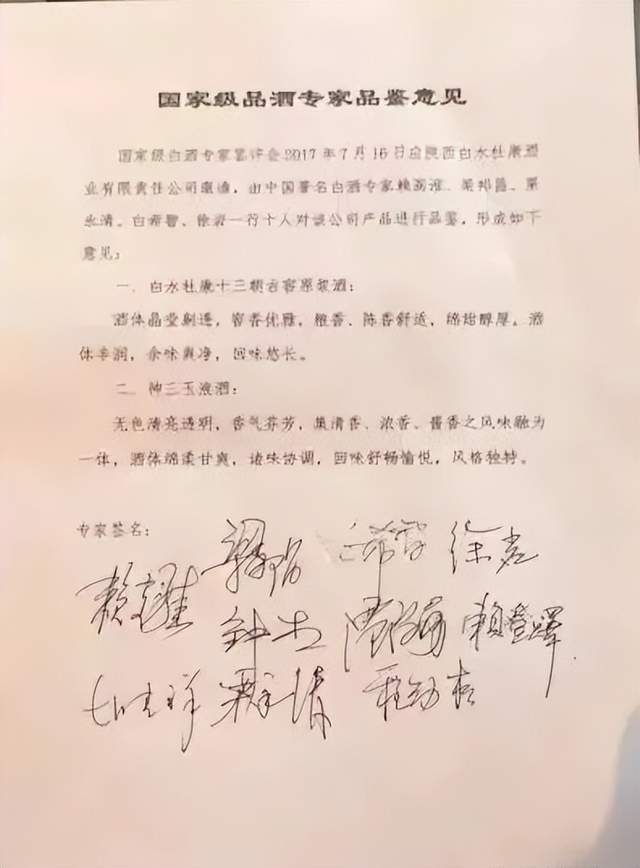 国家级品酒专家品鉴意见
国家级白酒专家鉴评会2017年7月16日应陕西白水杜康酒
业有限责任公司邀请，由中国著名白酒专家赖高淮、梁邦昌、栗
永清、白希智、徐岩一行十人对该公司产品进行品鉴，形成如下
意见：
一、白水杜康十三朝古窖原浆酒：
酒体晶莹剔透，窖香优雅，粮香、陈香舒适，绵甜醇厚。酒
体丰润，余味爽净，回味悠长。
二、神三玉液酒：
无色清亮透明，香气芬芳，集清香、浓香、酱香之风味融为
一体，酒体绵柔甘爽，诸味协调，回味舒畅愉悦，风格独特。
专家签名：
梁邦昌 白希智 徐岩
赖高淮 钟杰 赖登燡
栗永清